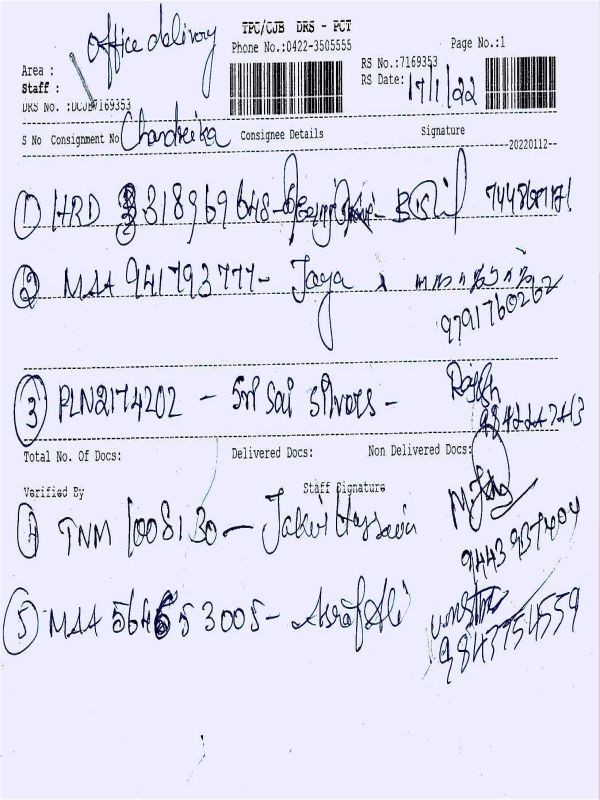 Office delivery
TPC/CJB DRS - PCT
Phone No.:0422-3505555
Page No.:1
Area :
Staff :
DRS No. :DCJB7169353
RS No.:7169353
RS Date: 17/1/22
S No Consignment No Consignee Details Signature
Chandrika
20220112
1 HRD 318969648 -
2 MAA 941793777 - Jaya
9791760262
3 PLN2174202 - Sri Sai Silvers - Rajesh
9842247413
Total No. Of Docs: Delivered Docs: Non Delivered Docs:
Verified By Staff Signature
4 TNM 1008130 - Jakir Hussain
9443937404
5 MAA 564653005 - Asraf Ali
9843754559